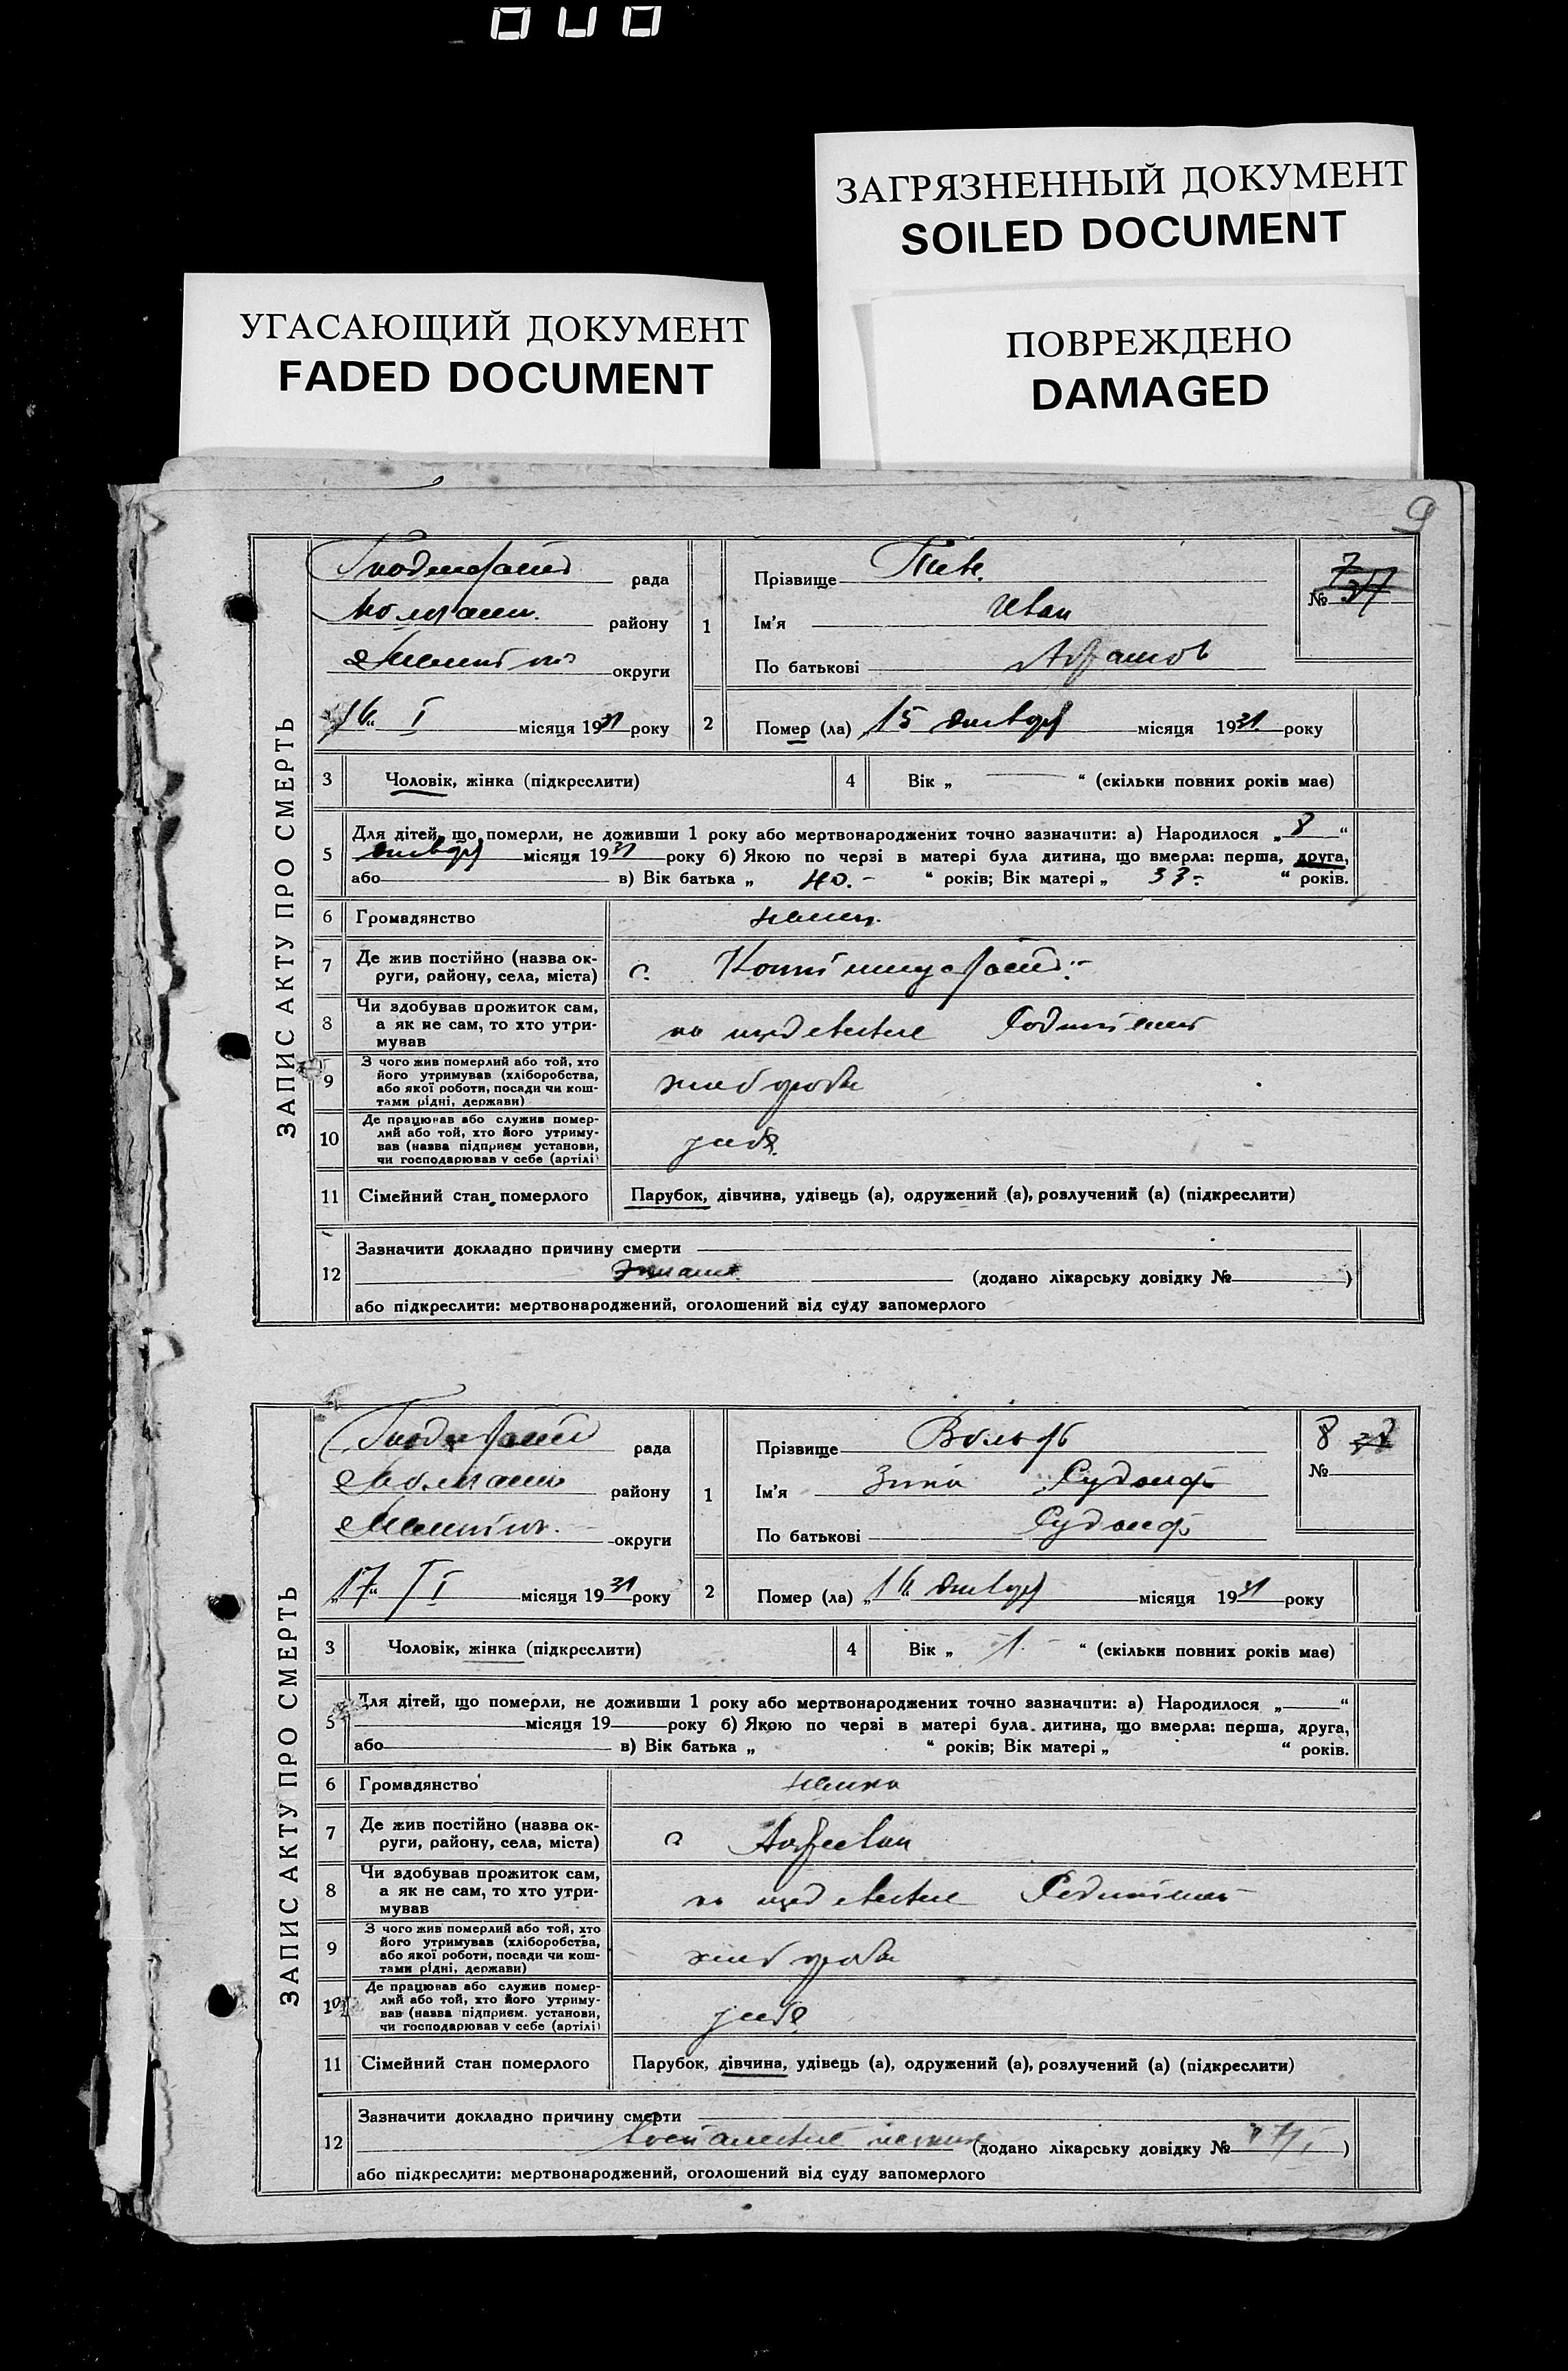 ЗАГРЯЗНЕННЫЙ ДОКУМЕНТ
SOILED DOCUMENT
УГАСАЮЩИЙ ДОКУМЕНТ
FADED DOCUMENT
ПОВРЕЖДЕНО
DAMAGED
9
ЗАПИС АКТУ ПРО СМЕРТЬ
рада
району
округи
16 I місяця 1931 року
1
Прізвище
Ім'я Иван
По батькові
№ 7
2 Помер (ла) 15 января місяця 1931 року
3 Чоловік, жінка (підкреслити)
4 Вік „ — “ (скільки повних років має)
5 Для дітей, що померли, не доживши 1 року або мертвонароджених точно зазначити: а) Народилося „ 8 “
января місяця 1931 року б) Якою по черзі в матері була дитина, що вмерла: перша, друга,
або в) Вік батька „ 40.- “ років; Вік матері „ 33- “ років.
6 Громадянство немец.
7 Де жив постійно (назва округи, району, села, міста) с.
8 Чи здобував прожиток сам,
а як не сам, то хто утри-
мував
на иждевении
9 З чого жив померлий або той, хто
його утримував (хліборобства,
або якої роботи, посади чи кош-
тами рідні, держави)
10 Де працював або служив помер-
лий або той, хто його утриму-
вав (назва підприєм установи,
чи господарював у себе (артілі)
11 Сімейний стан померлого Парубок, дівчина, удівець (а), одружений (а), розлучений (а) (підкреслити)
12 Зазначити докладно причину смерти
(додано лікарську довідку № )
або підкреслити: мертвонароджений, оголошений від суду запомерлого
ЗАПИС АКТУ ПРО СМЕРТЬ
рада
району
округи
„17“ I місяця 1931 року
1
Прізвище Вольф
Ім'я Зина
По батькові
8
№
2 Помер (ла) „16 января місяця 1931 року
3 Чоловік, жінка (підкреслити)
4 Вік „ 1. “ (скільки повних років має)
5 Для дітей, що померли, не доживши 1 року або мертвонароджених точно зазначити: а) Народилося „ “
місяця 19 року б) Якою по черзі в матері була дитина, що вмерла: перша, друга,
або в) Вік батька „ “ років; Вік матері „ “ років.
6 Громадянство немка
7 Де жив постійно (назва ок-
руги, району, села, міста)
с
8 Чи здобував прожиток сам,
а як не сам, то хто утри-
мував
на иждевении
9 З чого жив померлий або той, хто
його утримував (хліборобства,
або якої роботи, посади чи кош-
тами рідні, держави)
10 Де працював або служив помер-
лий або той, хто його утриму-
вав (назва підприєм. установи,
чи господарював у себе (артілі)
11 Сімейний стан померлого Парубок, дівчина, удівець (а), одружений (а), розлучений (а) (підкреслити)
12 Зазначити докладно причину смерти
воспаление легких (додано лікарську довідку № )
або підкреслити: мертвонароджений, оголошений від суду запомерлого